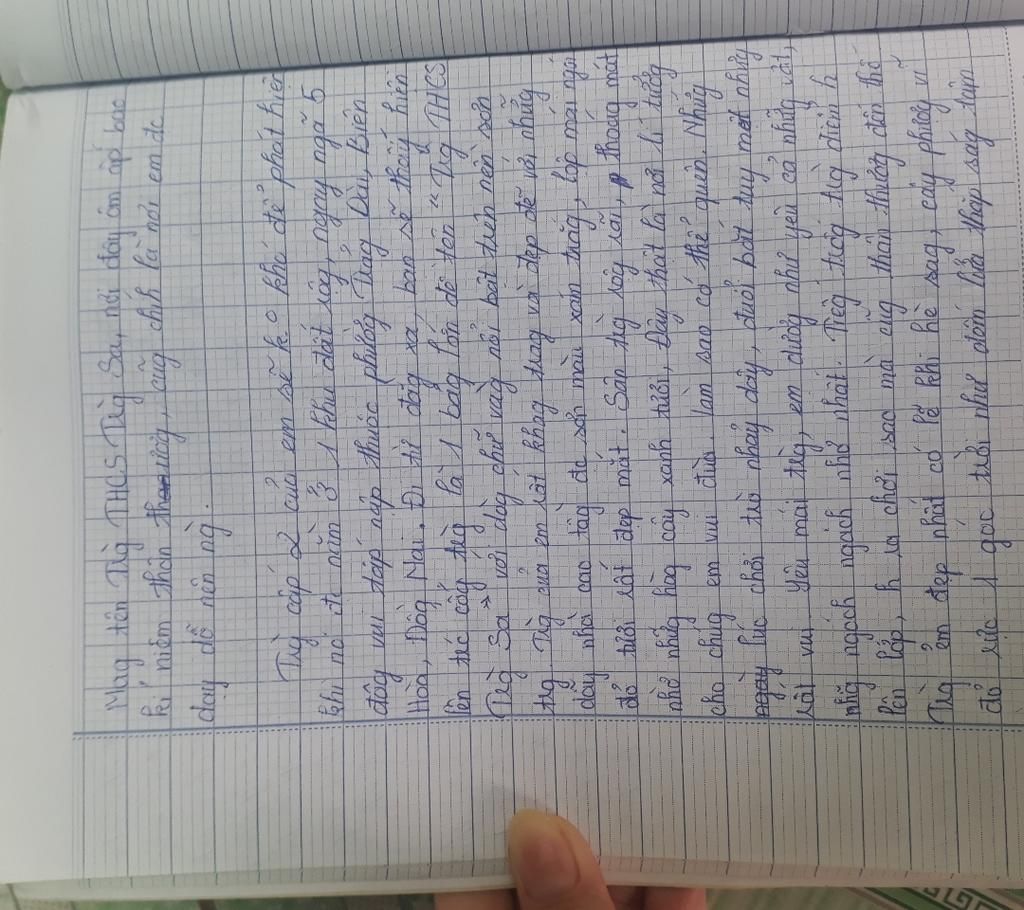 Mag tên Trg THCS Trg Sa, nơi đầy ấm áp bao
kỉ niệm thân thương, cũg chíh là nơi em đc
dạy dỗ nên ng.
Trg cấp 2 của em sẽ k o khó để phát hiện
khi nó đc nằm ở 1 khu đất rộg, ngay ngã 5
đầy vui tấp nập thuộc phườg Trảg Dài, Biên
Hoà, Đồg Nai. Đi từ đằg xa, bạn sẽ thấy hiện
lên trc cổg trg là 1 bảg lớn đề tên " Trg THCS
Trg Sa" với dòg chữ vàg nổi bật trên nền sơn
trg. Trg của em rất khag trag và đẹp đẽ với nhữg
dãy nhà cao tầg đc sơn màu xám trắg, lợp mái ngói
đỏ tươi rất đẹp mắt. Sân trg rộg rãi, thoág mát
nhờ nhữg hàg cây xanh tươi, Đây thật là nơi lí tưởg
cho chúg em vui đùa. làm sao có thể quên. Nhữg
lúc chơi trò nhảy dây, đuổi bắt tuy mệt nhưg
rất vui. Yêu mái trg, em dườg như yêu cả nhữg vật,
nhữg ngóch ngách nhỏ nhất. Tiếg trốg trg điểm h
lên lớp, h ra chơi sao mà cũg thân thươg đến thế
Trg em đẹp nhất có lẽ khi hè sag, cây phượg vĩ
đỏ rực 1 góc trời như đém lửa thắp ság tận